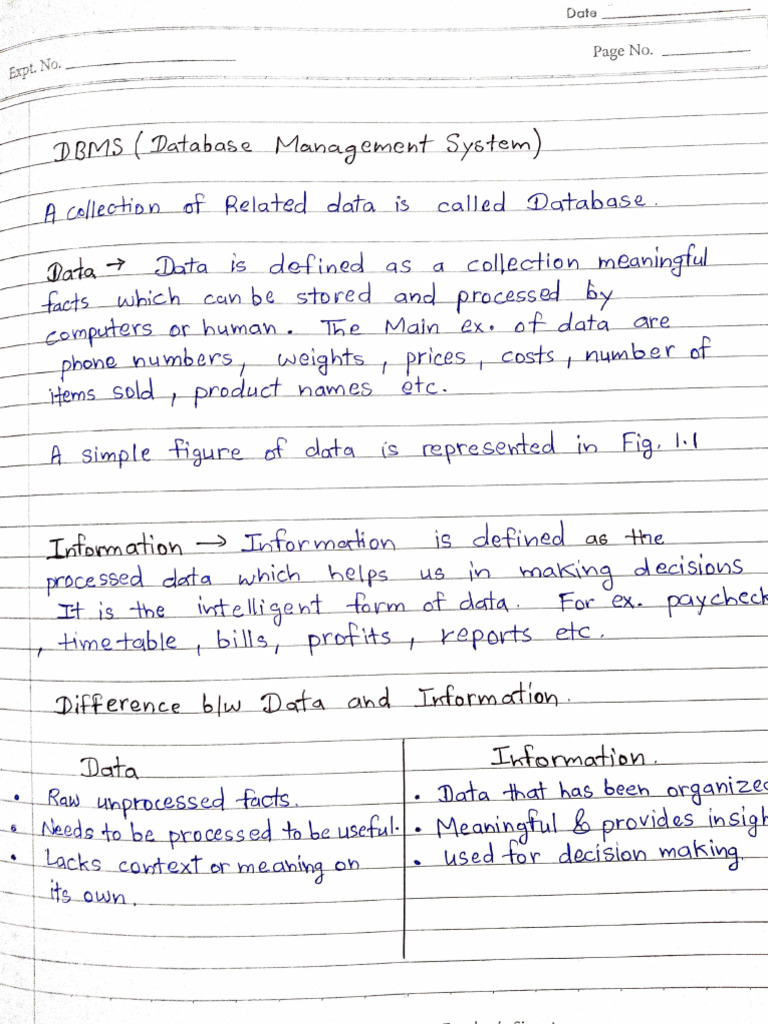 Date
Expt. No.
Page No.
DBMS (Database Management System)
A collection of Related data is called Database.
Data → Data is defined as a collection meaningful
facts which can be stored and processed by
computers or human. The Main ex. of data are
phone numbers, weights, prices, costs, number of
items sold, product names etc.
A simple figure of data is represented in Fig. 1.1
Information → Information is defined as the
processed data which helps us in making decisions
It is the intelligent form of data. For ex. paycheck
, timetable, bills, profits, reports etc.
Difference b/w Data and Information.
Data
• Raw unprocessed facts.
• Needs to be processed to be useful.
• Lacks context or meaning on
its own.
Information.
• Data that has been organize
• Meaningful & provides insigh
• used for decision making.